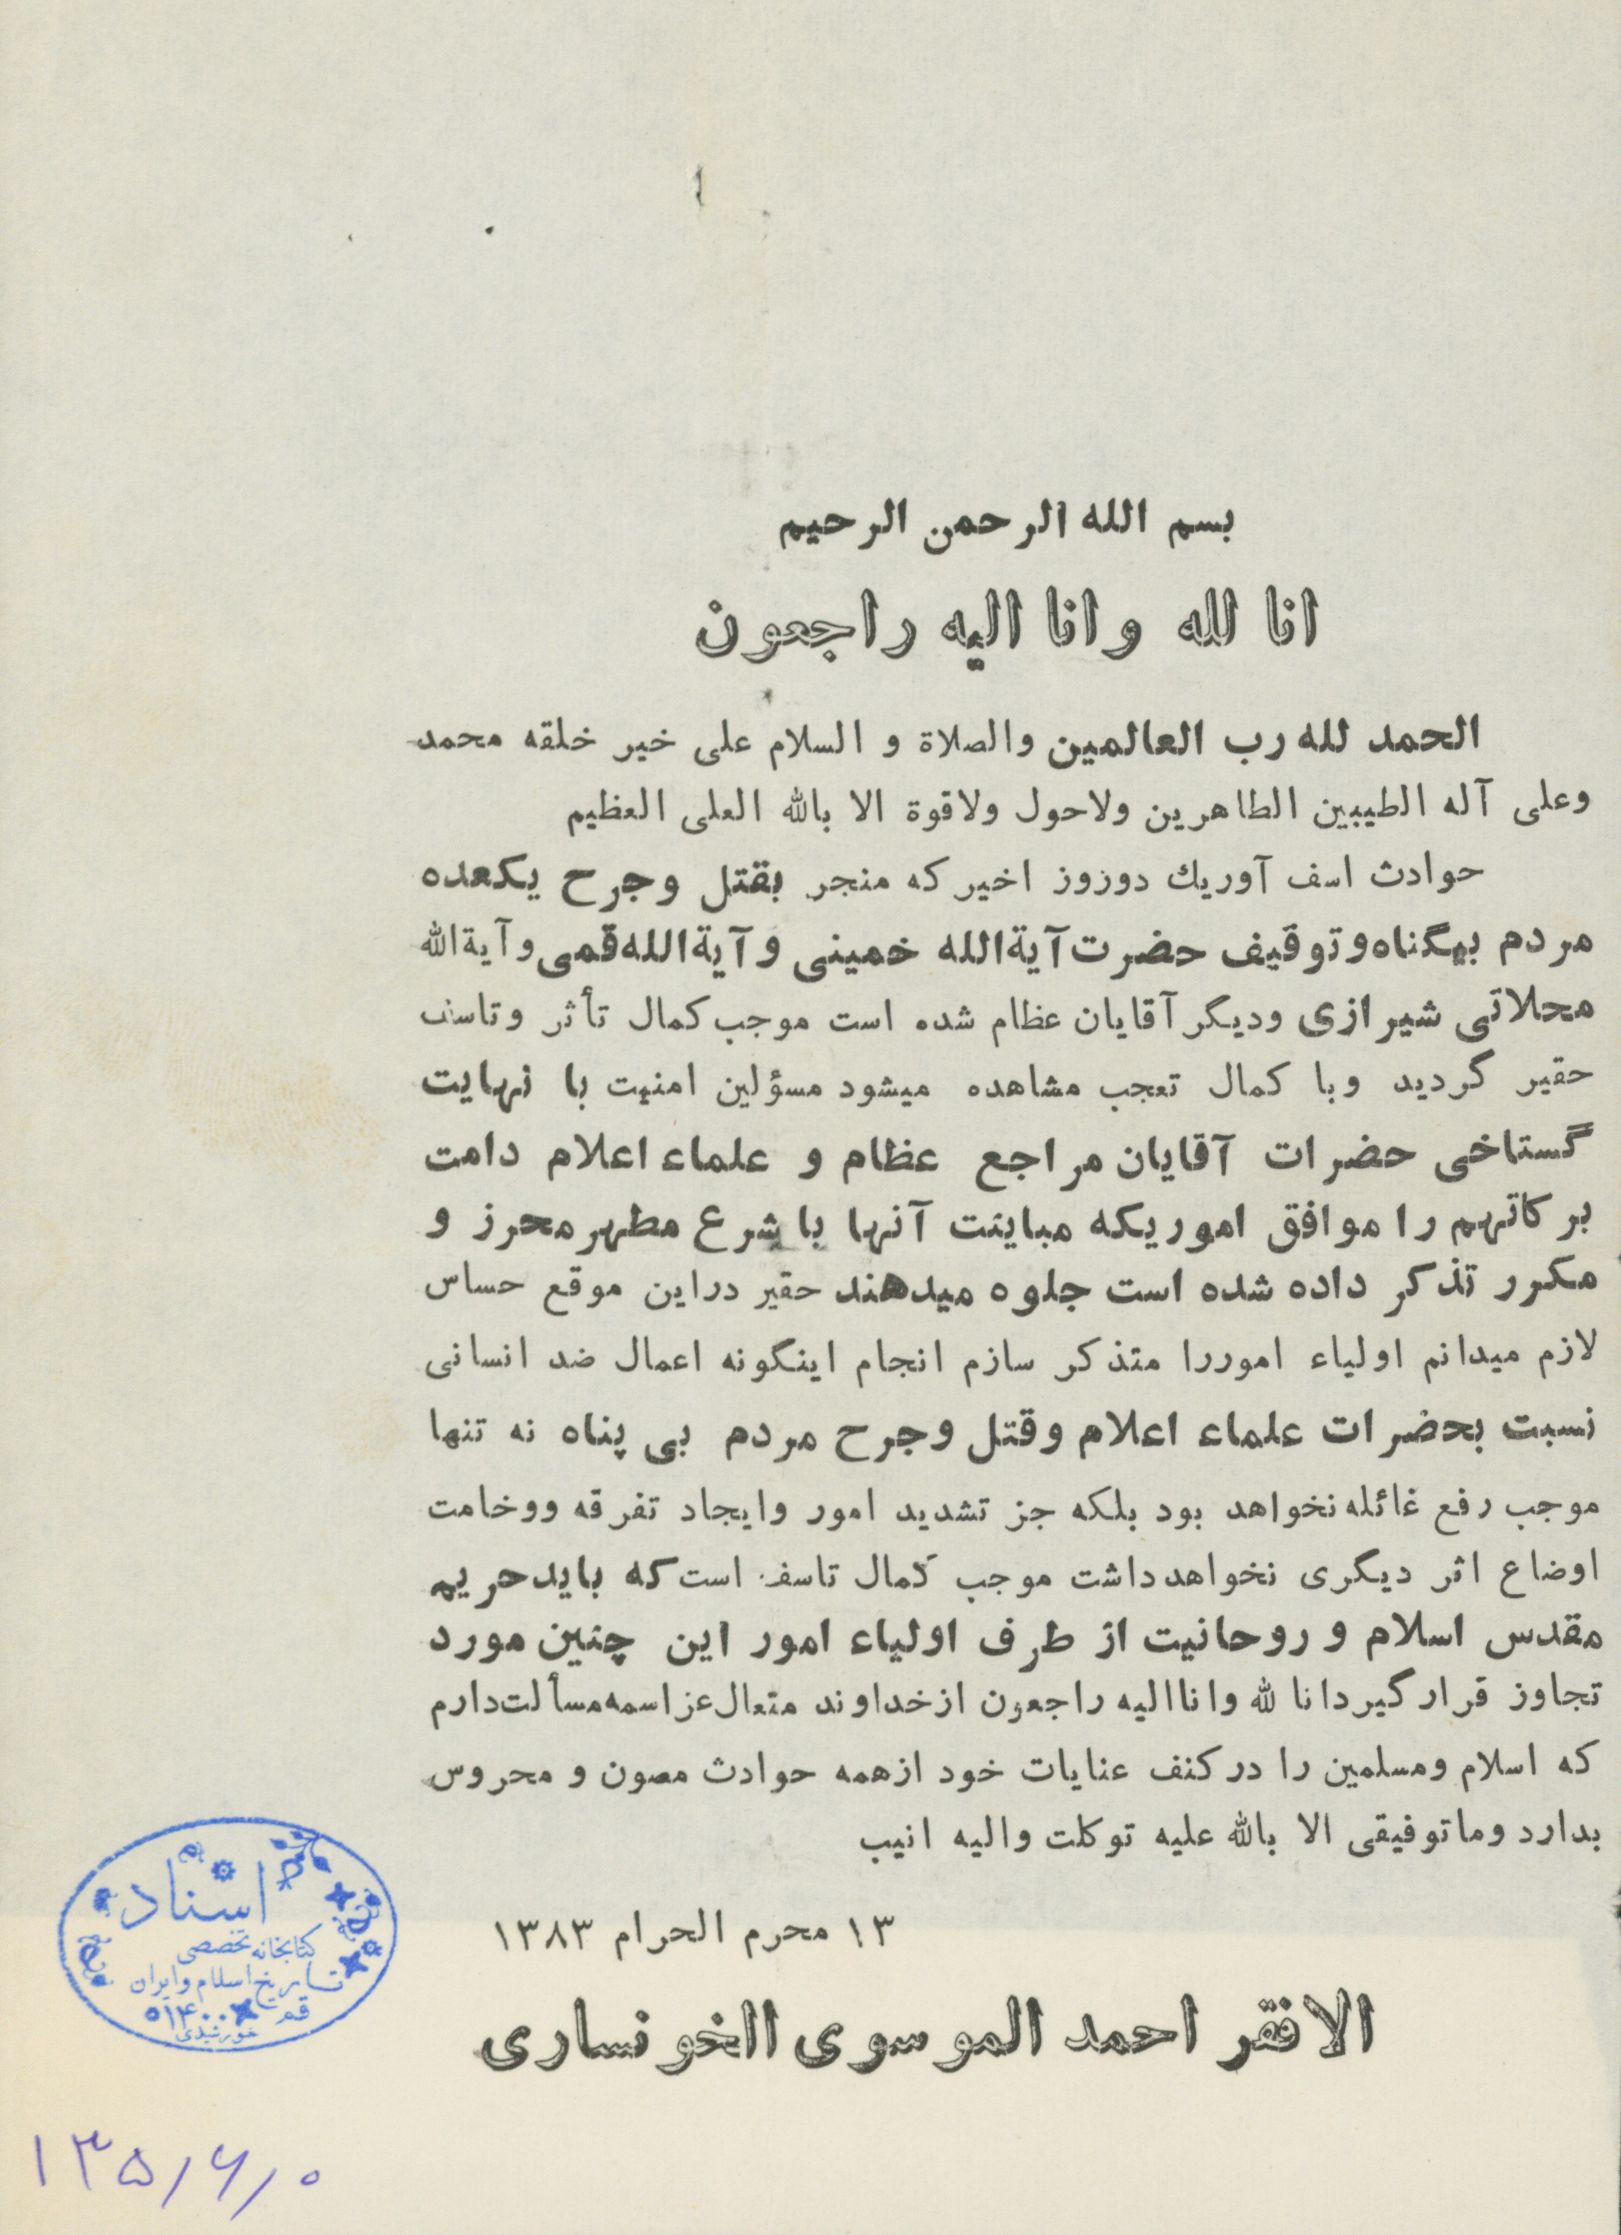 بسم الله الرحمن الرحیم
انا لله وانا الیه راجعون
الحمد لله رب العالمین والصلاة و السلام علی خیر خلقه محمد
وعلی آله الطیبین الطاهرین ولاحول ولاقوة الا بالله العلی العظیم
حوادث اسف آوریك دوزوز اخیر که منجر بقتل وجرح یکعده
مردم بیگناه وتوقیف حضرت آیةالله خمینی وآیةالله قمی وآیةالله
محلاتی شیرازی ودیگر آقایان عظام شده است موجب کمال تأثر وتاسف
حقیر گردید وبا کمال تعجب مشاهده میشود مسؤلین امنیت با نهایت
گستاخی حضرات آقایان مراجع عظام و علماء اعلام دامت
برکاتهم را موافق اموریکه مباینت آنها با شرع مطهر محرز و
مکرر تذکر داده شده است جلوه میدهند حقیر دراین موقع حساس
لازم میدانم اولیاء اموررا متذکر سازم انجام اینگونه اعمال ضد انسانی
نسبت بحضرات علماء اعلام وقتل وجرح مردم بی پناه نه تنها
موجب رفع غائله نخواهد بود بلکه جز تشدید امور وایجاد تفرقه ووخامت
اوضاع اثر دیگری نخواهد داشت موجب کمال تاسف است که باید حریم
مقدس اسلام و روحانیت از طرف اولیاء امور این چنین مورد
تجاوز قرار گیرد انا لله وانا الیه راجعون از خداوند متعال عز اسمه مسألت دارم
که اسلام ومسلمین را در کنف عنایات خود ازهمه حوادث مصون و محروس
بدارد وماتوفیقی الا بالله علیه توکلت والیه انیب
۱۳ محرم الحرام ۱۳۸۳
الافقر احمد الموسوی الخونساری
اسناد
کتابخانه تخصصی
تاریخ اسلام و ایران
قم
۱۳۵/۶/۰